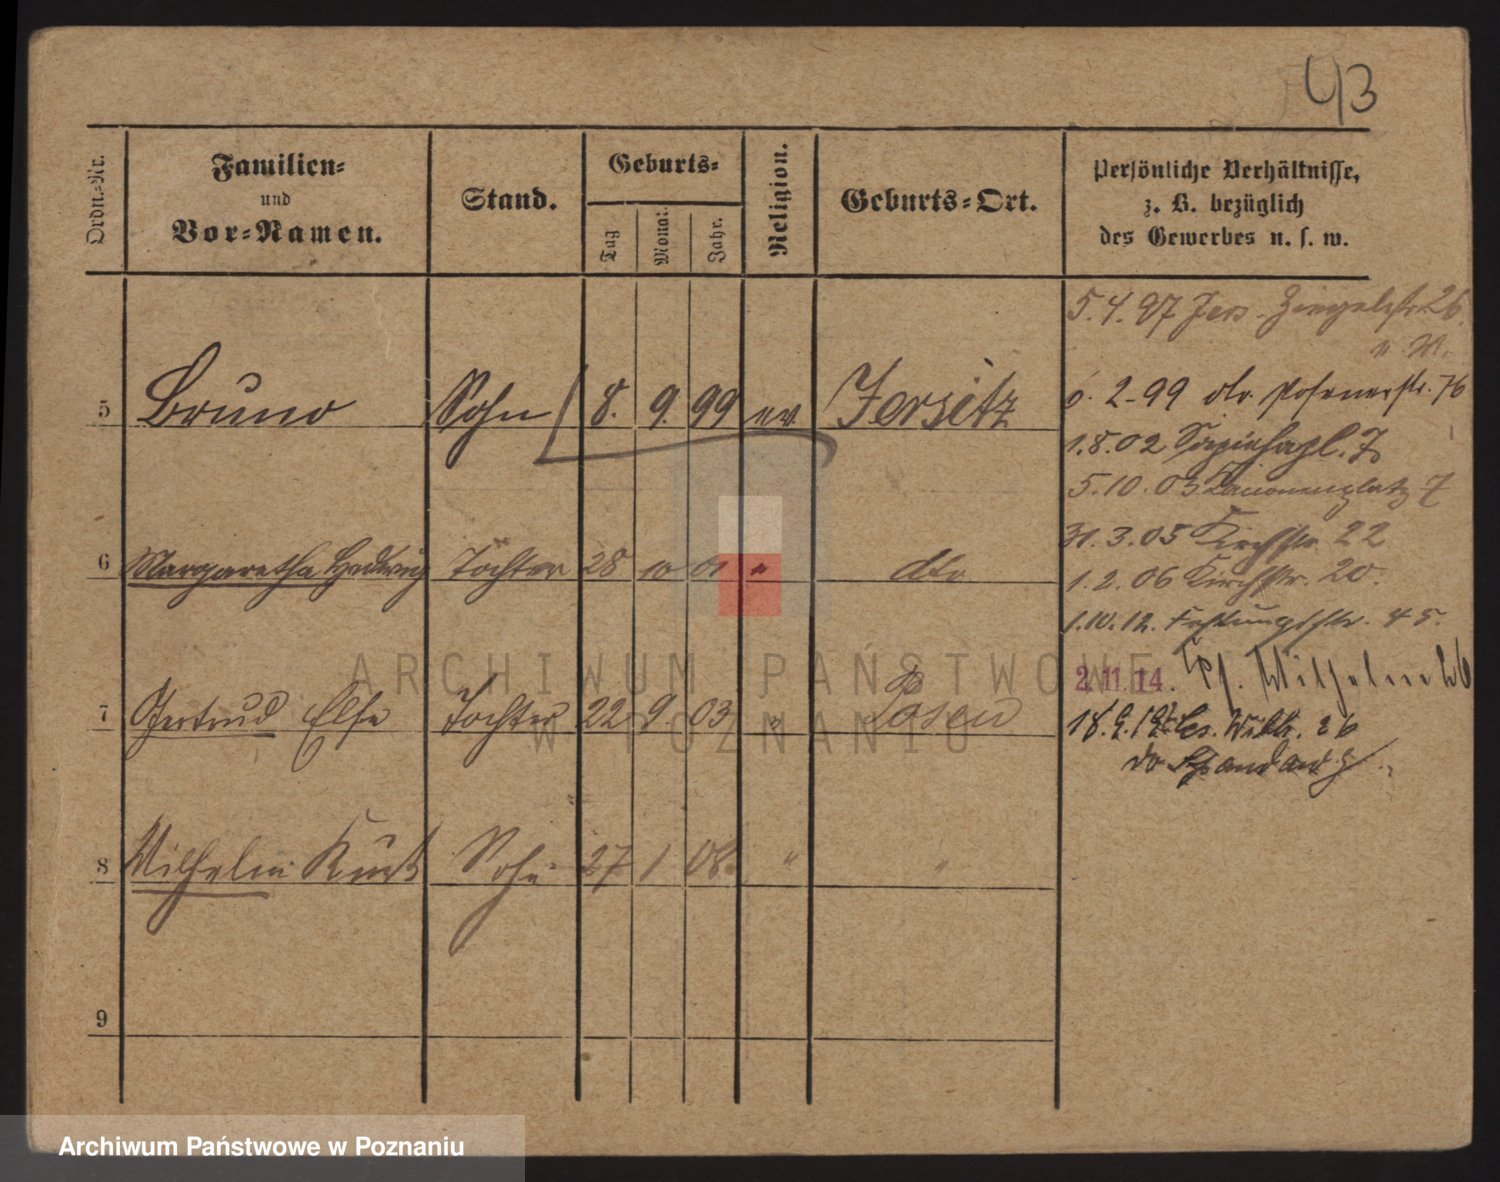 43
Ordn.-Nr.
Familien-
und
Vor-Namen.
Stand.
Geburts-
Tag
Monat
Jahr.
Religion.
Geburts-Ort.
Persönliche Verhältnisse,
z. B. bezüglich
des Gewerbes u. s. w.
5.4.97 Jers. Ziegelstr. 26
5 Bruno Sohn 8. 9. 99 ev. Jersitz
6. 2. 99 do Posenerstr. 76
1.8.02 Sapiehapl. 7
5.10.03 7
31.3.05 Kirchstr. 22
6 Margaretha Hedwig Tochter 28 10 01 " do
1.2.06 Kirchstr. 20.
1.10.12. Festungsstr. 45.
2.11.14. Wilhelm 26
7 Gertrud Else Tochter 22 9. 03 " Posen
18.9.19 26
do
8 Wilhelm Kurt Sohn 27 1 08. " "
9
ARCHIWUM PAŃSTWOWE
W POZNANIU
Archiwum Państwowe w Poznaniu